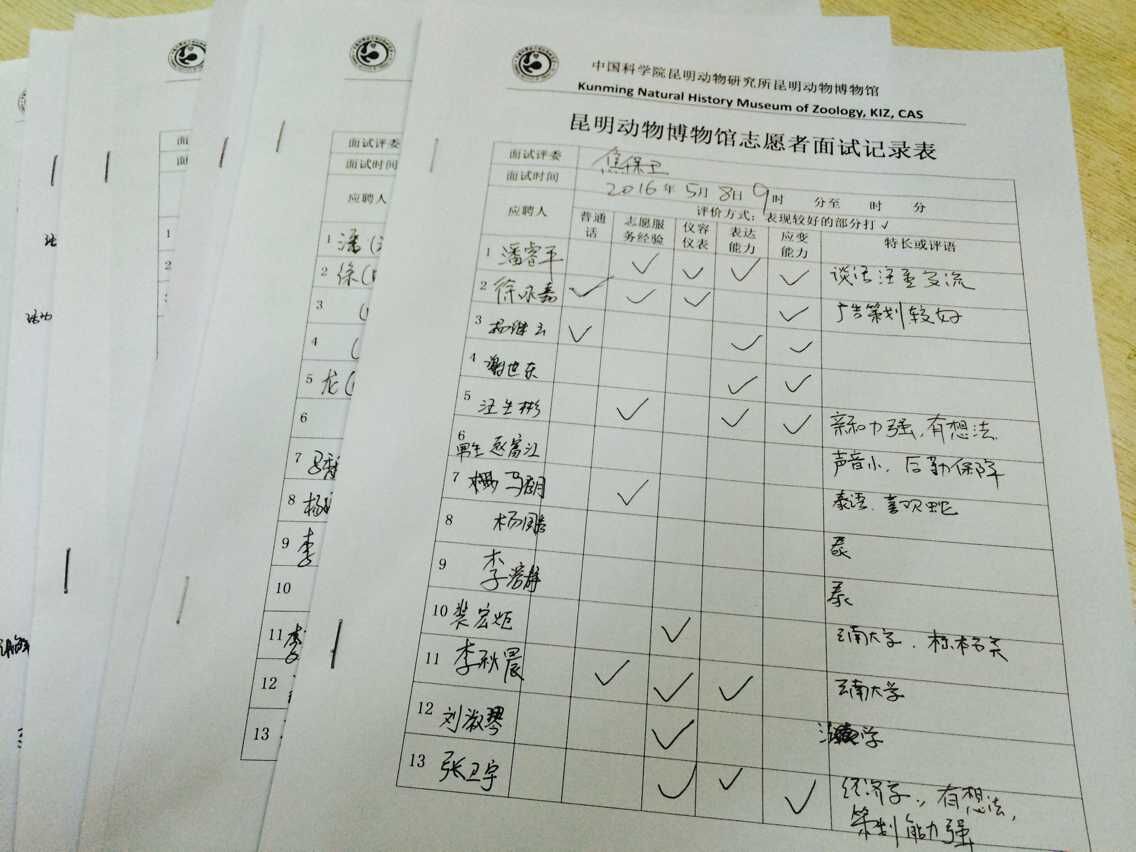 中国科学院昆明动物研究所昆明动物博物馆
Kunming Natural History Museum of Zoology, KIZ, CAS
昆明动物博物馆志愿者面试记录表
面试评委 焦保卫
面试时间 2016年5月8日9时 分至 时 分
应聘人 评价方式：表现较好的部分打 √
普通话 志愿服务经验 仪容仪表 表达能力 应变能力 特长或评语
1 潘睿平 ✓ ✓ ✓ ✓ 谈话注重交流
2 徐永嘉 ✓ ✓ ✓ ✓ 广告策划较好
3 杨继云 ✓ ✓ ✓
4 谢世东 ✓ ✓
5 汪生彬 ✓ ✓ ✓ 亲和力强，有想法
6 男生 赵富江 声音小，后勤保障
7 杨马朗 ✓ 泰语、喜欢蛇
8 杨鹏 泰
9 李 静 泰
10 裴宏炬 ✓ 云南大学
11 李秋晨 ✓ ✓ ✓ 云南大学
12 刘淑琴 ✓ 学
13 张卫宇 ✓ ✓ ✓ 经济学，有想法，
策划能力强
面试评委
面试时间
应聘人
1 潘
2 徐
3
4
5 龙
6
7
8 杨
9 李
10
11 李
12
13